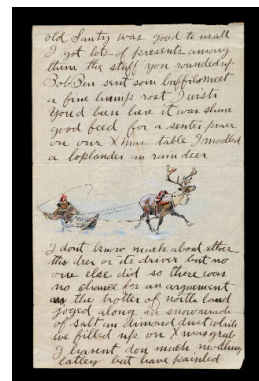 old Santy was good to us all
I got lots of presents among
them the stuff you rounded up
Bob Ben sent som buffilo meet
a fine hump rost I wish
You'd been here it was shure
good feed for a senter peace
on our X mas table I modled
a loplander an rain deer
I dont know much about ether
the deer or its driver but no
one else did so there was
no chance for an arguement
as the trotter of north land
joged along in snow made
of salt an dimond dust while
we filled up on X mas grub
I havent don much modling
lattery but have painted